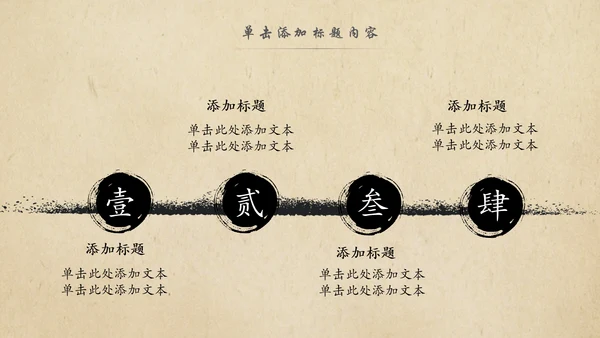 单击添加标题内容
添加标题
单击此处添加文本
单击此处添加文本
添加标题
单击此处添加文本
单击此处添加文本
壹
贰
叁
肆
添加标题
单击此处添加文本
单击此处添加文本
添加标题
单击此处添加文本
单击此处添加文本